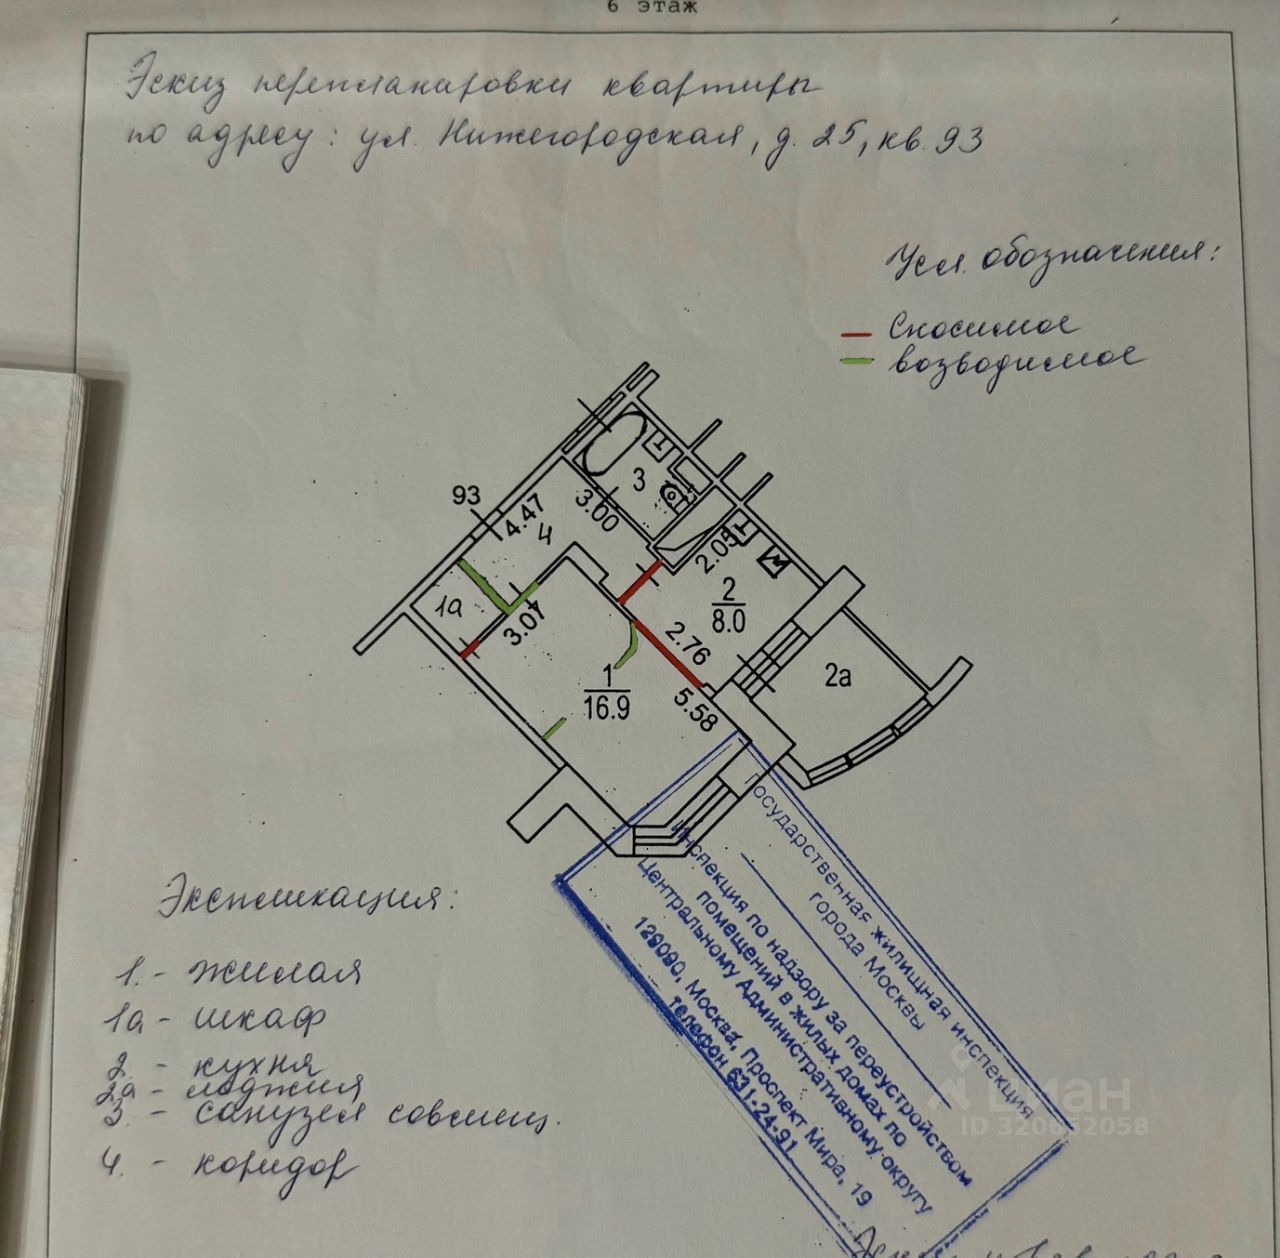 6 этаж
Эскиз перепланировки квартиры
по адресу: ул. Нижегородская, д. 25, кв. 93
Усл. обозначения:
Сносимое
возводимое
93
4.47
4
3.00
3
2.05
2
8.0
1а
3.07
2.76
1
16.9
5.58
2а
Государственная жилищная инспекция
города Москвы
Инспекция по надзору за переустройством
помещений в жилых домах по
Центральному Административному округу
129090, Москва, Проспект Мира, 19
телефон 631-24-91
Экспликация:
1. - жилая
1а - шкаф
2. - кухня
2а - лоджия
3. - санузел совмещ.
4. - коридор
циан
ID 320652058